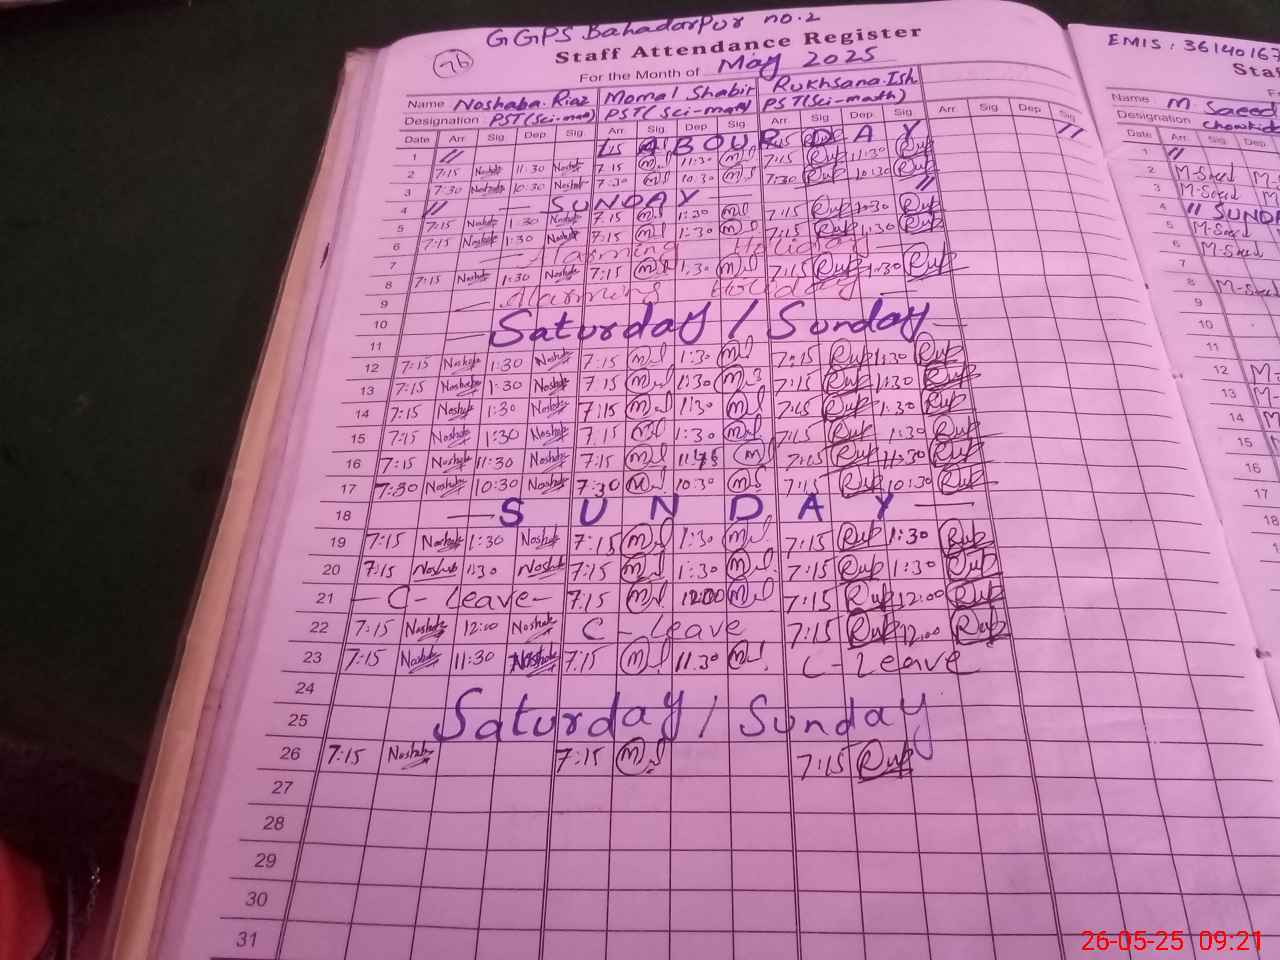 GGPS Bahadarpur no.2
76
Staff Attendance Register
For the Month of May 2025
Name Noshaba.Riaz Momal Shabir Rukhsana.Ish
Designation PST(Sci-math) PST(Sci-math) PST(Sci-math)
Date Arr. Sig Dep. Sig. Arr. Sig Dep Sig Arr. Sig Dep. Sig Arr. Sig Dep Sig
1 // LABOUR DAY //
2 7:15 Noshab 11:30 Noshab 7:15 11:30 7:15 11:30
3 7:30 Noshab 10:30 Noshab 7:30 10:30 7:30 10:30
4 // — SUNDAY — //
5 7:15 Noshab 1:30 Noshab 7:15 1:30 7:15 1:30
6 7:15 Noshab 1:30 Noshab 7:15 1:30 7:15 1:30
7 — Holiday —
8 7:15 Noshab 1:30 Noshab 7:15 1:30 7:15 1:30
9 — Holiday —
10 — Saturday / Sunday —
11
12 7:15 Noshab 1:30 Noshab 7:15 1:30 7:15 Ruk 1:30 Ruk
13 7:15 Noshab 1:30 Noshab 7:15 1:30 7:15 Ruk 1:30 Ruk
14 7:15 Noshab 1:30 Noshab 7:15 1:30 7:15 Ruk 1:30 Ruk
15 7:15 Noshab 1:30 Noshab 7:15 1:30 7:15 Ruk 1:30 Ruk
16 7:15 Noshab 11:30 Noshab 7:15 7:15 Ruk 11:30 Ruk
17 7:30 Noshab 10:30 Noshab 7:30 10:30 7:15 Ruk 10:30 Ruk
18 — SUNDAY —
19 7:15 Noshab 1:30 Noshab 7:15 1:30 7:15 Ruk 1:30 Ruk
20 7:15 Noshab 1:30 Noshab 7:15 1:30 7:15 Ruk 1:30 Ruk
21 — C- Leave — 7:15 12:00 7:15 Ruk 12:00 Ruk
22 7:15 Noshab 12:00 Noshab C - Leave 7:15 Ruk 12:00 Ruk
23 7:15 Noshab 11:30 Noshab 7:15 11:30 C- Leave
24
25 Saturday / Sunday
26 7:15 Noshab 7:15 7:15 Ruk
27
28
29
30
31
EMIS : 36140167
Name : M. Saeed
Designation : chowkid
Date Arr. Sig Dep.
1 //
2 M-Saeed
3 M-Saeed
4 // SUND
5 M-Saeed
6 M-Saeed
7
8 M-Saeed
9
10
11
12 M-
13 M-
14 M
15
16
17
18
26-05-25 09:21